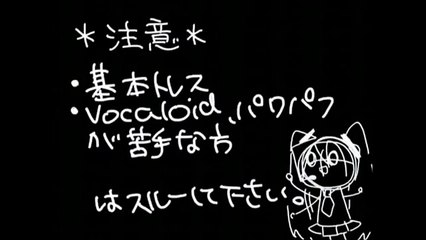 *注意*
・基本トレス
・vocaloid、パワパフ
が苦手な方
はスルーして下さい。